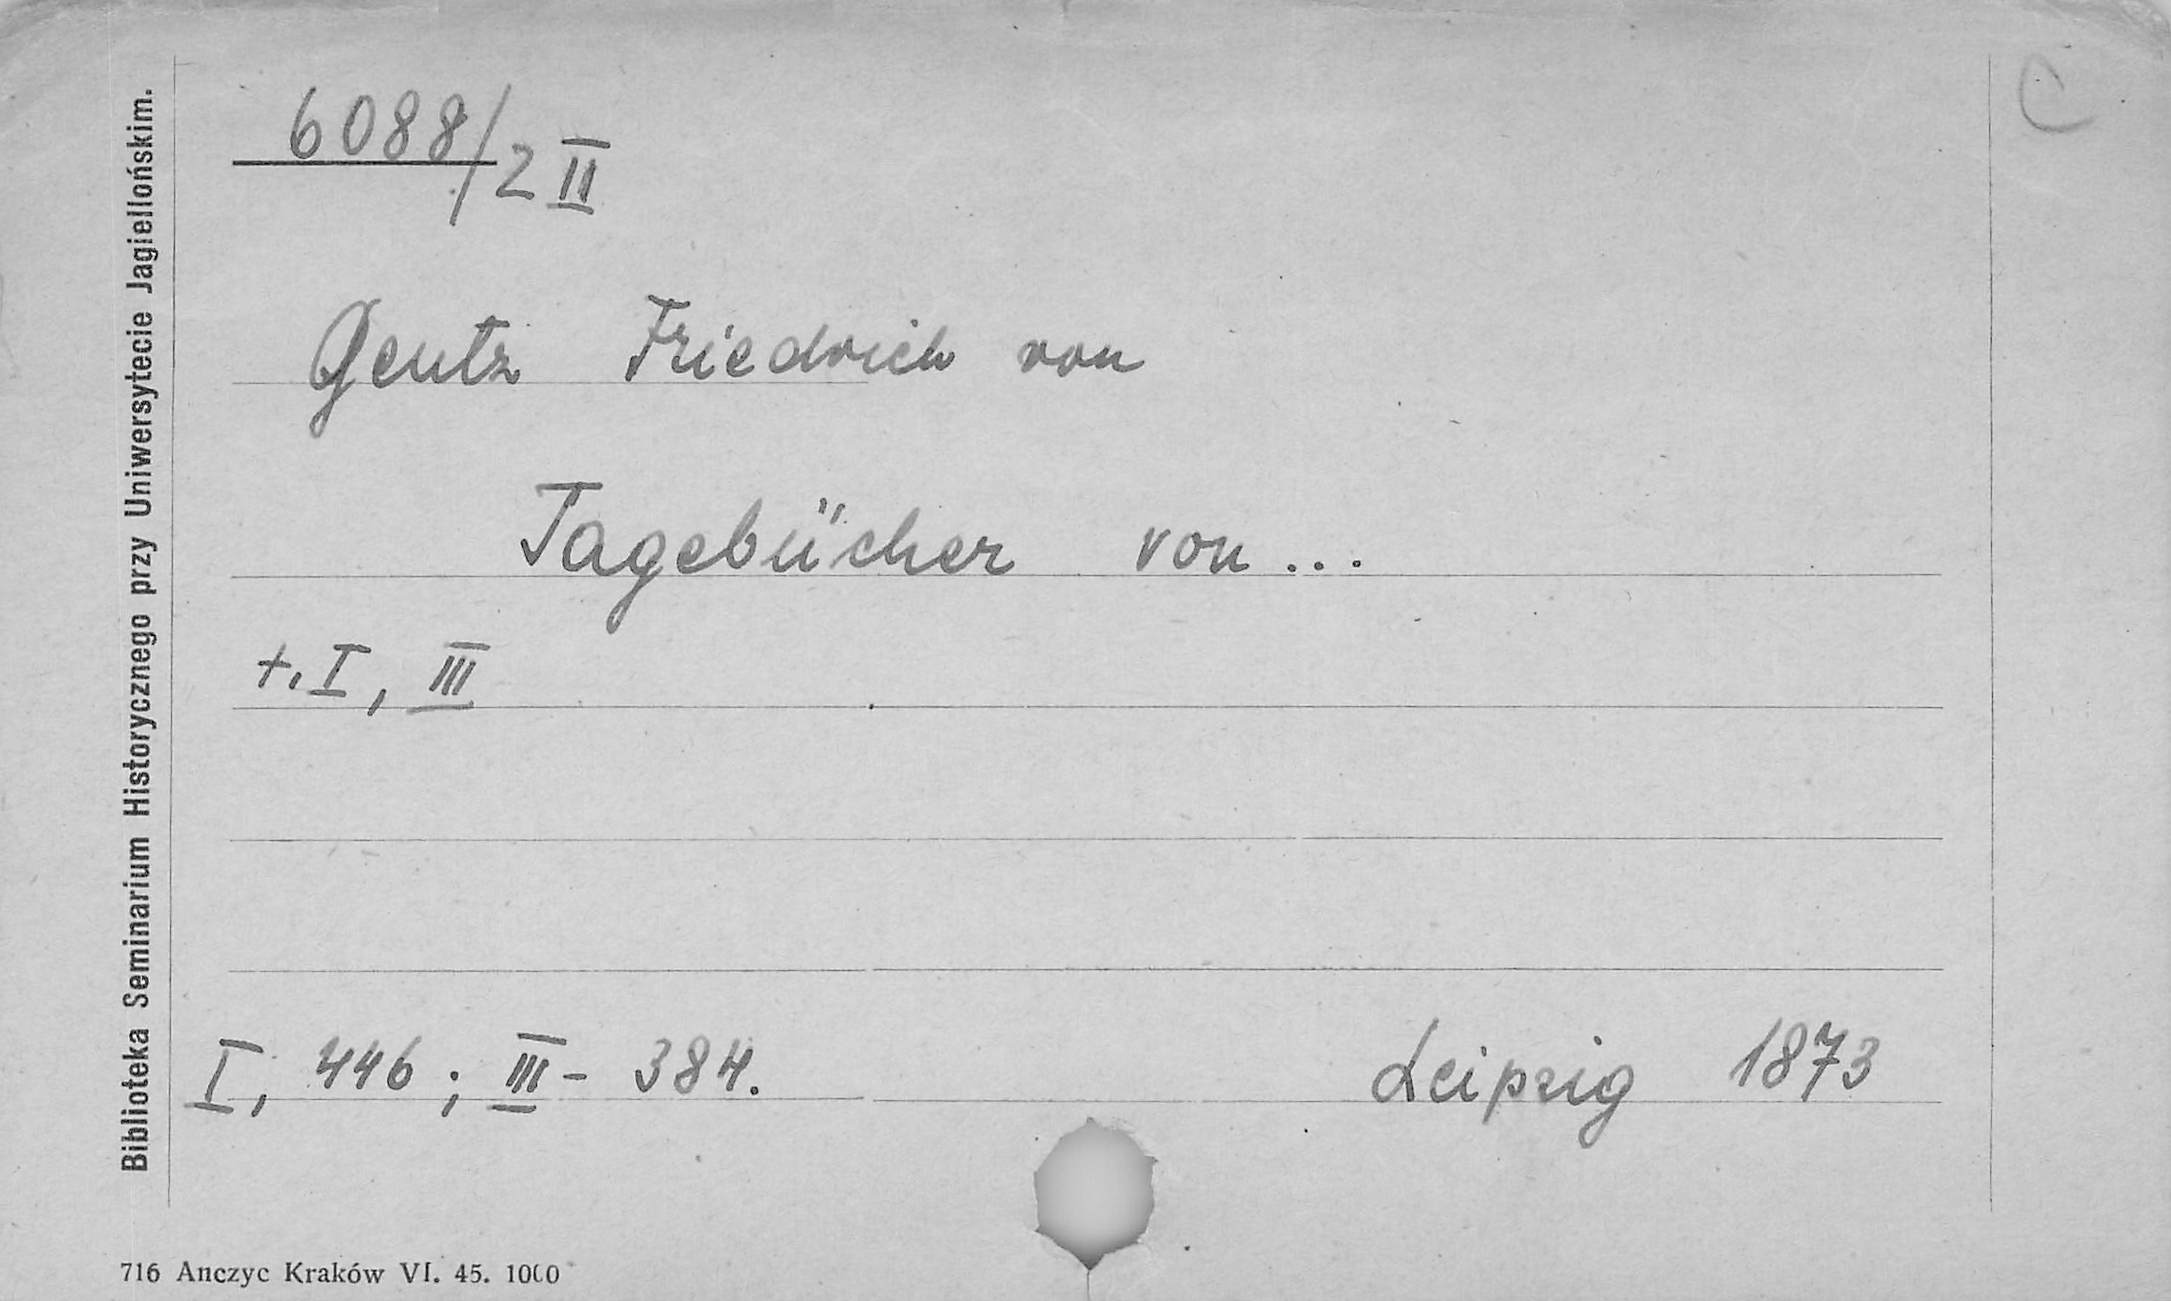 C
6088/2 II
Gentz Friedrich von
Tagebücher von ...
t. I, III
I, 446 ; III - 384.
Leipzig 1873
Biblioteka Seminarium Historycznego przy Uniwersytecie Jagiellońskim.
716 Anczyc Kraków VI. 45. 1000